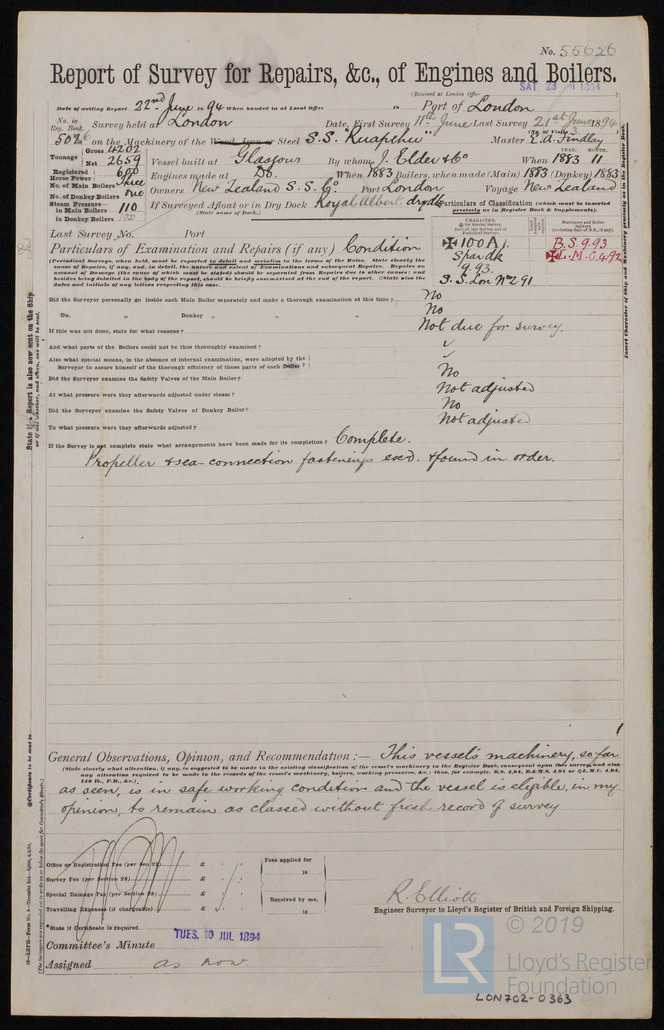 No. 55626
Report of Survey for Repairs, &c., of Engines and Boilers.
(Received at London Office SAT. 23 JUN 1894
Date of writing Report 22nd June 1894 When handed in at Local Office 18 Port of London
No. in Reg. Book. Survey held at London Date, First Survey 11th June Last Survey 21st June 1894
(No. of Visits 3
5026 on the Machinery of the Wood, Iron or Steel S.S. "Ruapehu" Master E.A. Findlay
Tonnage Gross 4202 Net 2659 Vessel built at Glasgow By whom J. Elder & Co When YEAR. 1883 MONTH. 11
Registered Horse Power 600 Engines made at Do. When 1883 Boilers, when made (Main) 1883 (Donkey) 1883
No. of Main Boilers Three
No. of Donkey Boilers One Owners New Zealand S.S. Co. Port London Voyage New Zealand
Steam Pressure in Main Boilers 110 If Surveyed Afloat or in Dry Dock Royal Albert drydk
in Donkey Boilers (State name of Dock.)
Particulars of Classification (which must be inserted precisely as in Register Book & Supplements).
Last Survey No. Port
CHARACTER,
Machinery and Boiler Surveys
Particulars of Examination and Repairs (if any) Condition
✠100A1. B.S. 9.93
Spar dk ✠L.M.C. 4.92
9.93
S.S. Lon No 2.91
(Periodical Surveys, when held, must be reported in detail and seriatim in the terms of the Rules. State clearly the
cause of Repairs, if any, and, in detail, the nature and extent of Examinations and subsequent Repairs. Repairs on
account of Damage (the cause of which must be stated) should be separated from Repairs due to other causes; and
besides being detailed in the body of the report, should be briefly summarised at the end of the report. State also the
dates and initials of any letters respecting this case.
Did the Surveyor personally go inside each Main Boiler separately and make a thorough examination at this time? No
Do. „ Donkey „ „ „ No
If this was not done, state for what reasons? Not due for survey.
And what parts of the Boilers could not be thus thoroughly examined? ✓
Also what special means, in the absence of internal examination, were adopted by the
Surveyor to assure himself of the thorough efficiency of those parts of each Boiler? ✓
Did the Surveyor examine the Safety Valves of the Main Boiler? No
At what pressure were they afterwards adjusted under steam? Not adjusted
Did the Surveyor examine the Safety Valves of Donkey Boiler? No
To what pressure were they afterwards adjusted? Not adjusted
If the Survey is not complete state what arrangements have been made for its completion? Complete.
Propeller & sea connection fastenings exd. & found in order.
General Observations, Opinion, and Recommendation:— This vessel's machinery, so far
(State clearly what alteration, if any, is suggested to be made in the existing classification of the vessel's machinery in the Register Book, consequent upon this survey, and also
any alteration required to be made in the records of the vessel's machinery, boilers, working pressures, &c.: thus, for example, B.S. 4.94, B.&M.S. 4.94 or ✠L.M.C. 4.94,
140 lb., F.D., &c.)
as seen, is in safe working condition and the vessel is eligible, in my
opinion, to remain as classed without fresh record of survey
Office or Registration Fee (per Sec 27) £
Survey Fee (per Section 28) £
Special Damage Fee (per Section 28) £
Travelling Expenses (if chargeable) £
Fees applied for
18
Received by me,
18
R. Elliott
Engineer Surveyor to Lloyd's Register of British and Foreign Shipping.
*State if Certificate is required
Committee's Minute TUES. 10 JUL 1894
Assigned as now
© 2019
LR
Lloyd's Register
Foundation
LON702-0363